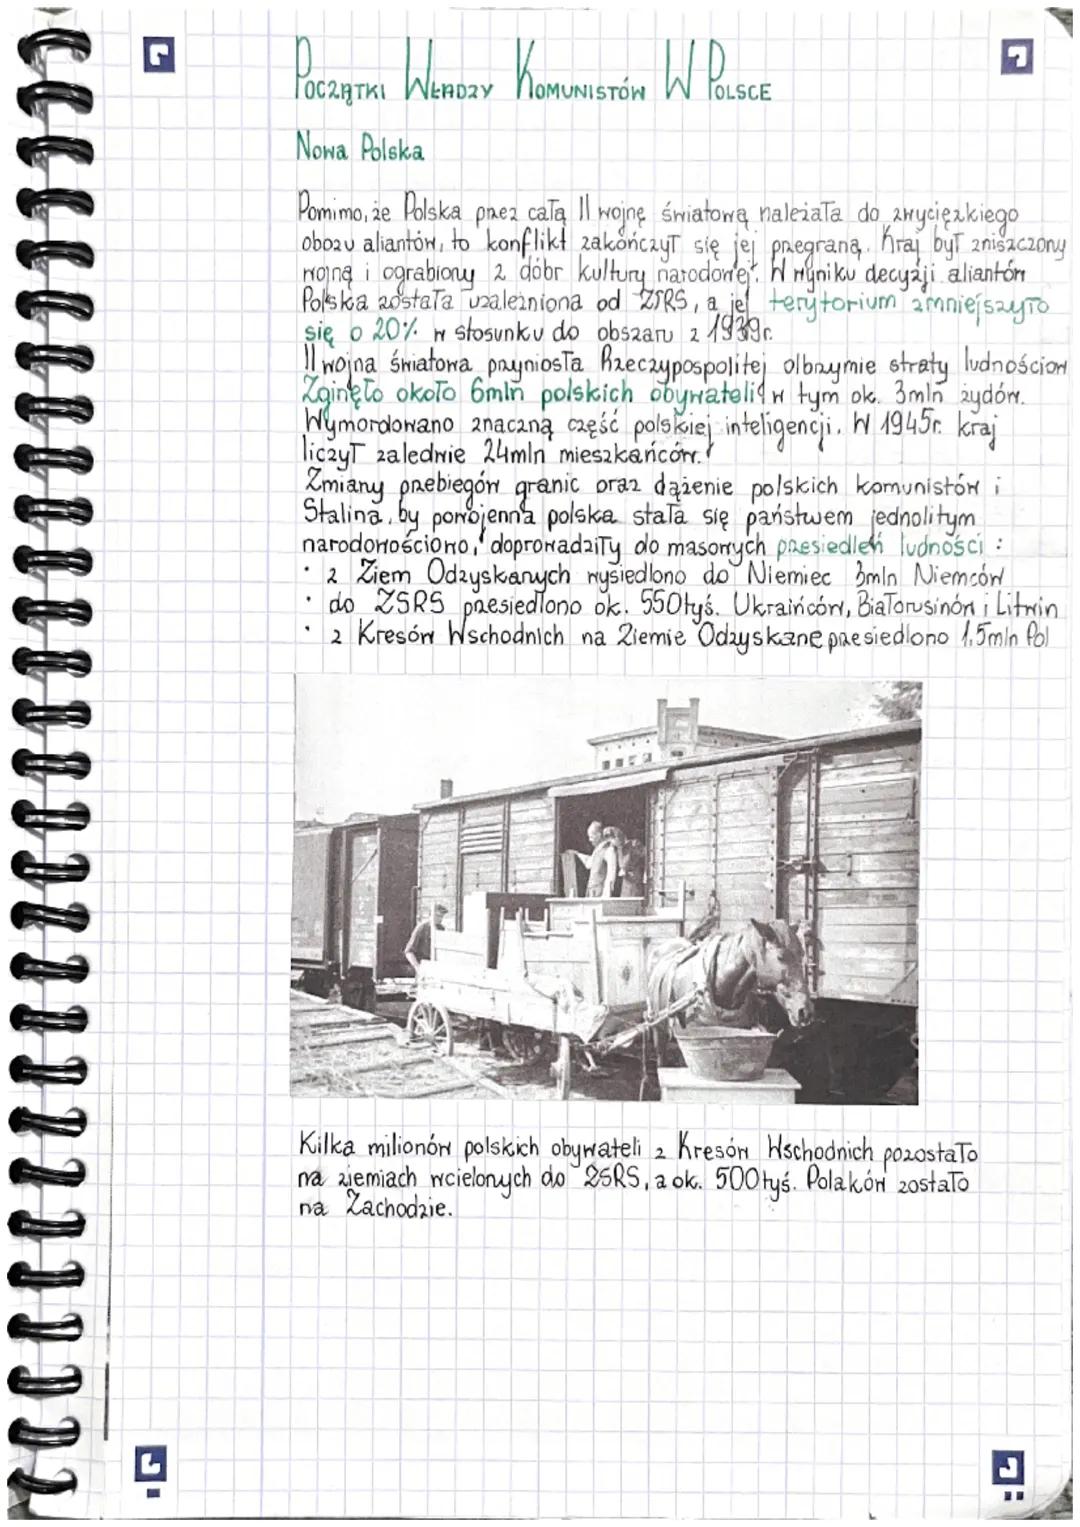 POCZĄTKI WŁADZY KOMUNISTÓW W POLSCE
Nowa Polska
Pomimo, że Polska przez całą II wojnę światową należała do zwycięzkiego
obozu aliantów, to konflikt zakończył się jej przegraną. Kraj był zniszczony
wojną i ograbiony z dóbr kultury narodowej. W wyniku decyzji aliantów
Polska została uzależniona od ZSRS, a jej terytorium zmniejszyło
się o 20% w stosunku do obszaru z 1939r.
II wojna światowa przyniosła Rzeczypospolitej olbrzymie straty ludnościow
Zginęło około 6mln polskich obywateli w tym ok. 3mln żydów.
Wymordowano znaczną część polskiej inteligencji. W 1945r. kraj
liczył zaledwie 24mln mieszkańców.
Zmiany przebiegów granic oraz dążenie polskich komunistów i
Stalina, by powojenna polska stała się państwem jednolitym
narodowościowo, doprowadziły do masowych przesiedleń ludności :
• z Ziem Odzyskanych wysiedlono do Niemiec 3mln Niemców
• do ZSRS przesiedlono ok. 550tyś. Ukraińców, Białorusinów i Litwin
• z Kresów Wschodnich na Ziemie Odzyskane przesiedlono 1,5mln Pol
Kilka milionów polskich obywateli z Kresów Wschodnich pozostało
na ziemiach wcielonych do ZSRS, a ok. 500tyś. Polaków zostało
na Zachodzie.